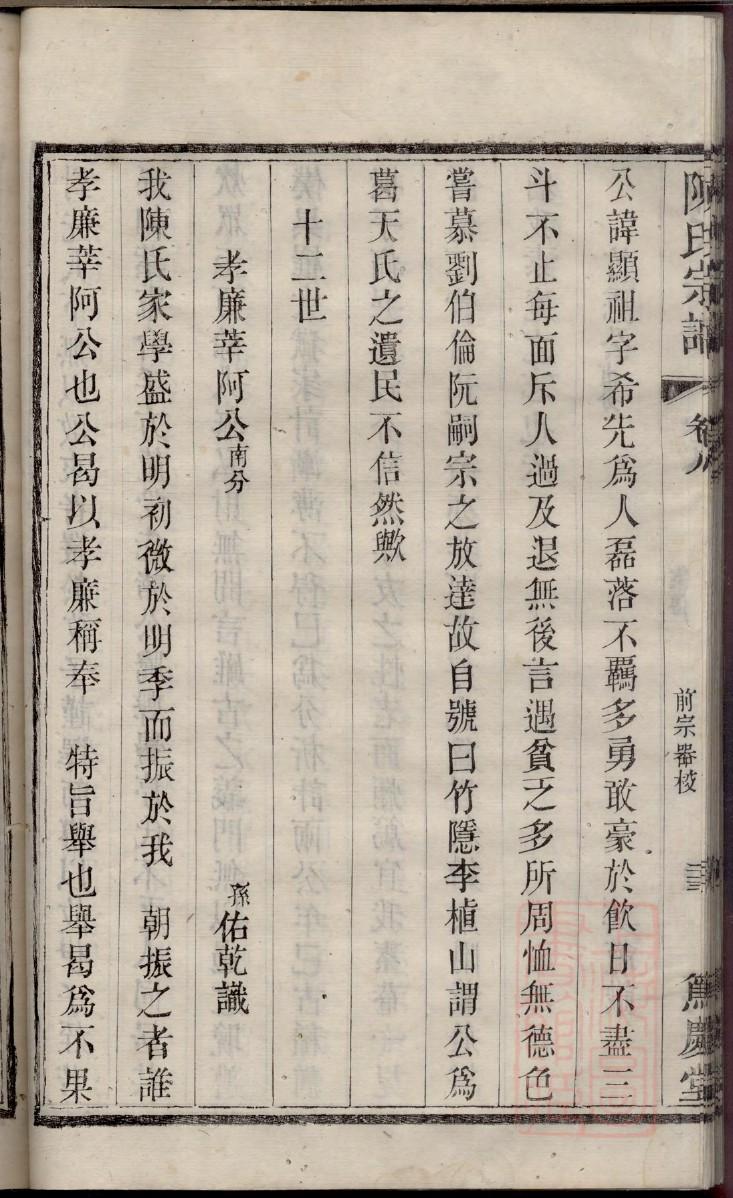 陳氏宗譜 卷八 前宗器棱 篤慶堂
公諱顯祖字希先爲人磊落不羈多勇敢豪於飲日不盡三
斗不止每面斥人過及退無後言遇貧乏多所周恤無德色
嘗慕劉伯倫阮嗣宗之放達故自號曰竹隱李植山謂公爲
葛天氏之遺民不信然歟
十二世
孝廉莘阿公南分 孫佑乾識
我陳氏家學盛於明初微於明季而振於我 朝振之者誰
孝廉莘阿公也公曷以孝廉稱奉 特旨舉也舉曷爲不果